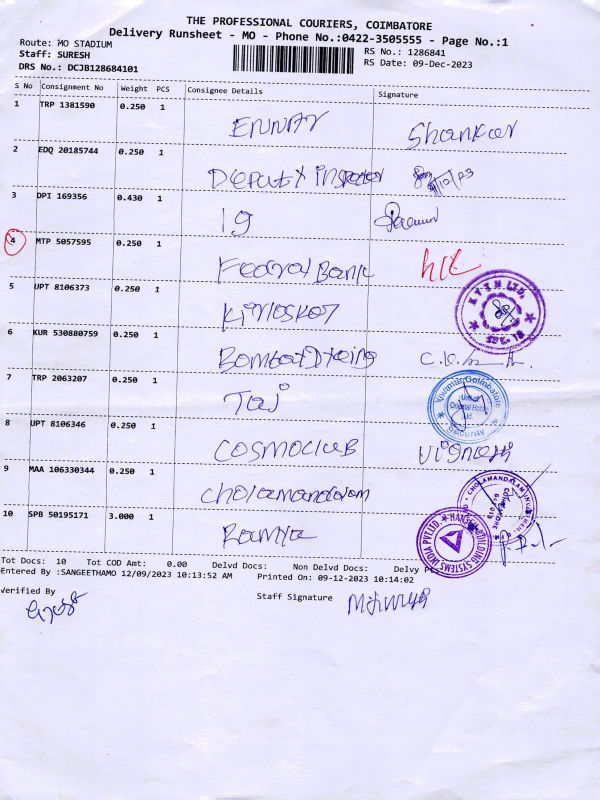 THE PROFESSIONAL COURIERS, COIMBATORE
Delivery Runsheet - MO - Phone No.:0422-3505555 - Page No.:1
Route: MO STADIUM
RS No.: 1286841
Staff: SURESH
RS Date: 09-Dec-2023
DRS No.: DCJB128684101
S No Consignment No Weight PCS Consignee Details Signature
1 TRP 1381590 0.250 1
Shankar
2 EDQ 20185744 0.250 1
3 DPI 169356 0.430 1
19
4 MTP 5057595 0.250 1
Federal Bank
5 UPT 8106373 0.250 1
Kirloskar
6 KUR 530880759 0.250 1
7 TRP 2063207 0.250 1
Taj
8 UPT 8106346 0.250 1
COSMOCLUB
9 MAA 106330344 0.250 1
10 SPB 50195171 3.000 1
Ramya
Tot Docs: 10 Tot COD Amt: 0.00 Delvd Docs: Non Delvd Docs: Delvy
Entered By :SANGEETHAMO 12/09/2023 10:13:52 AM Printed On: 09-12-2023 10:14:02
Verified By Staff Signature